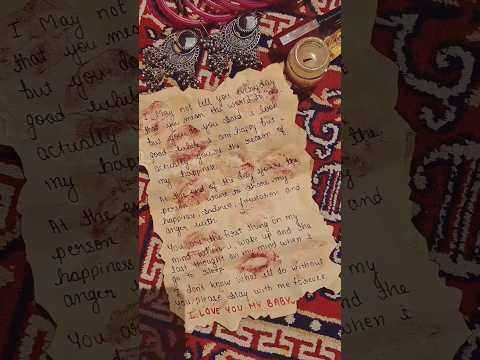 I May not tell you everyday
that you mean the world to
but you do. you
good while I am happy but
actually you're the reason of
my happiness
At the end of the day you're the
person I want to share my
happiness, sadness, frustration and
anger with
You are the first thing on my
mind when i wake up and the
last thought on my mind when i
go to sleep
I don't know what i'll do without
you please stay with me forever
I LOVE YOU MY BABY